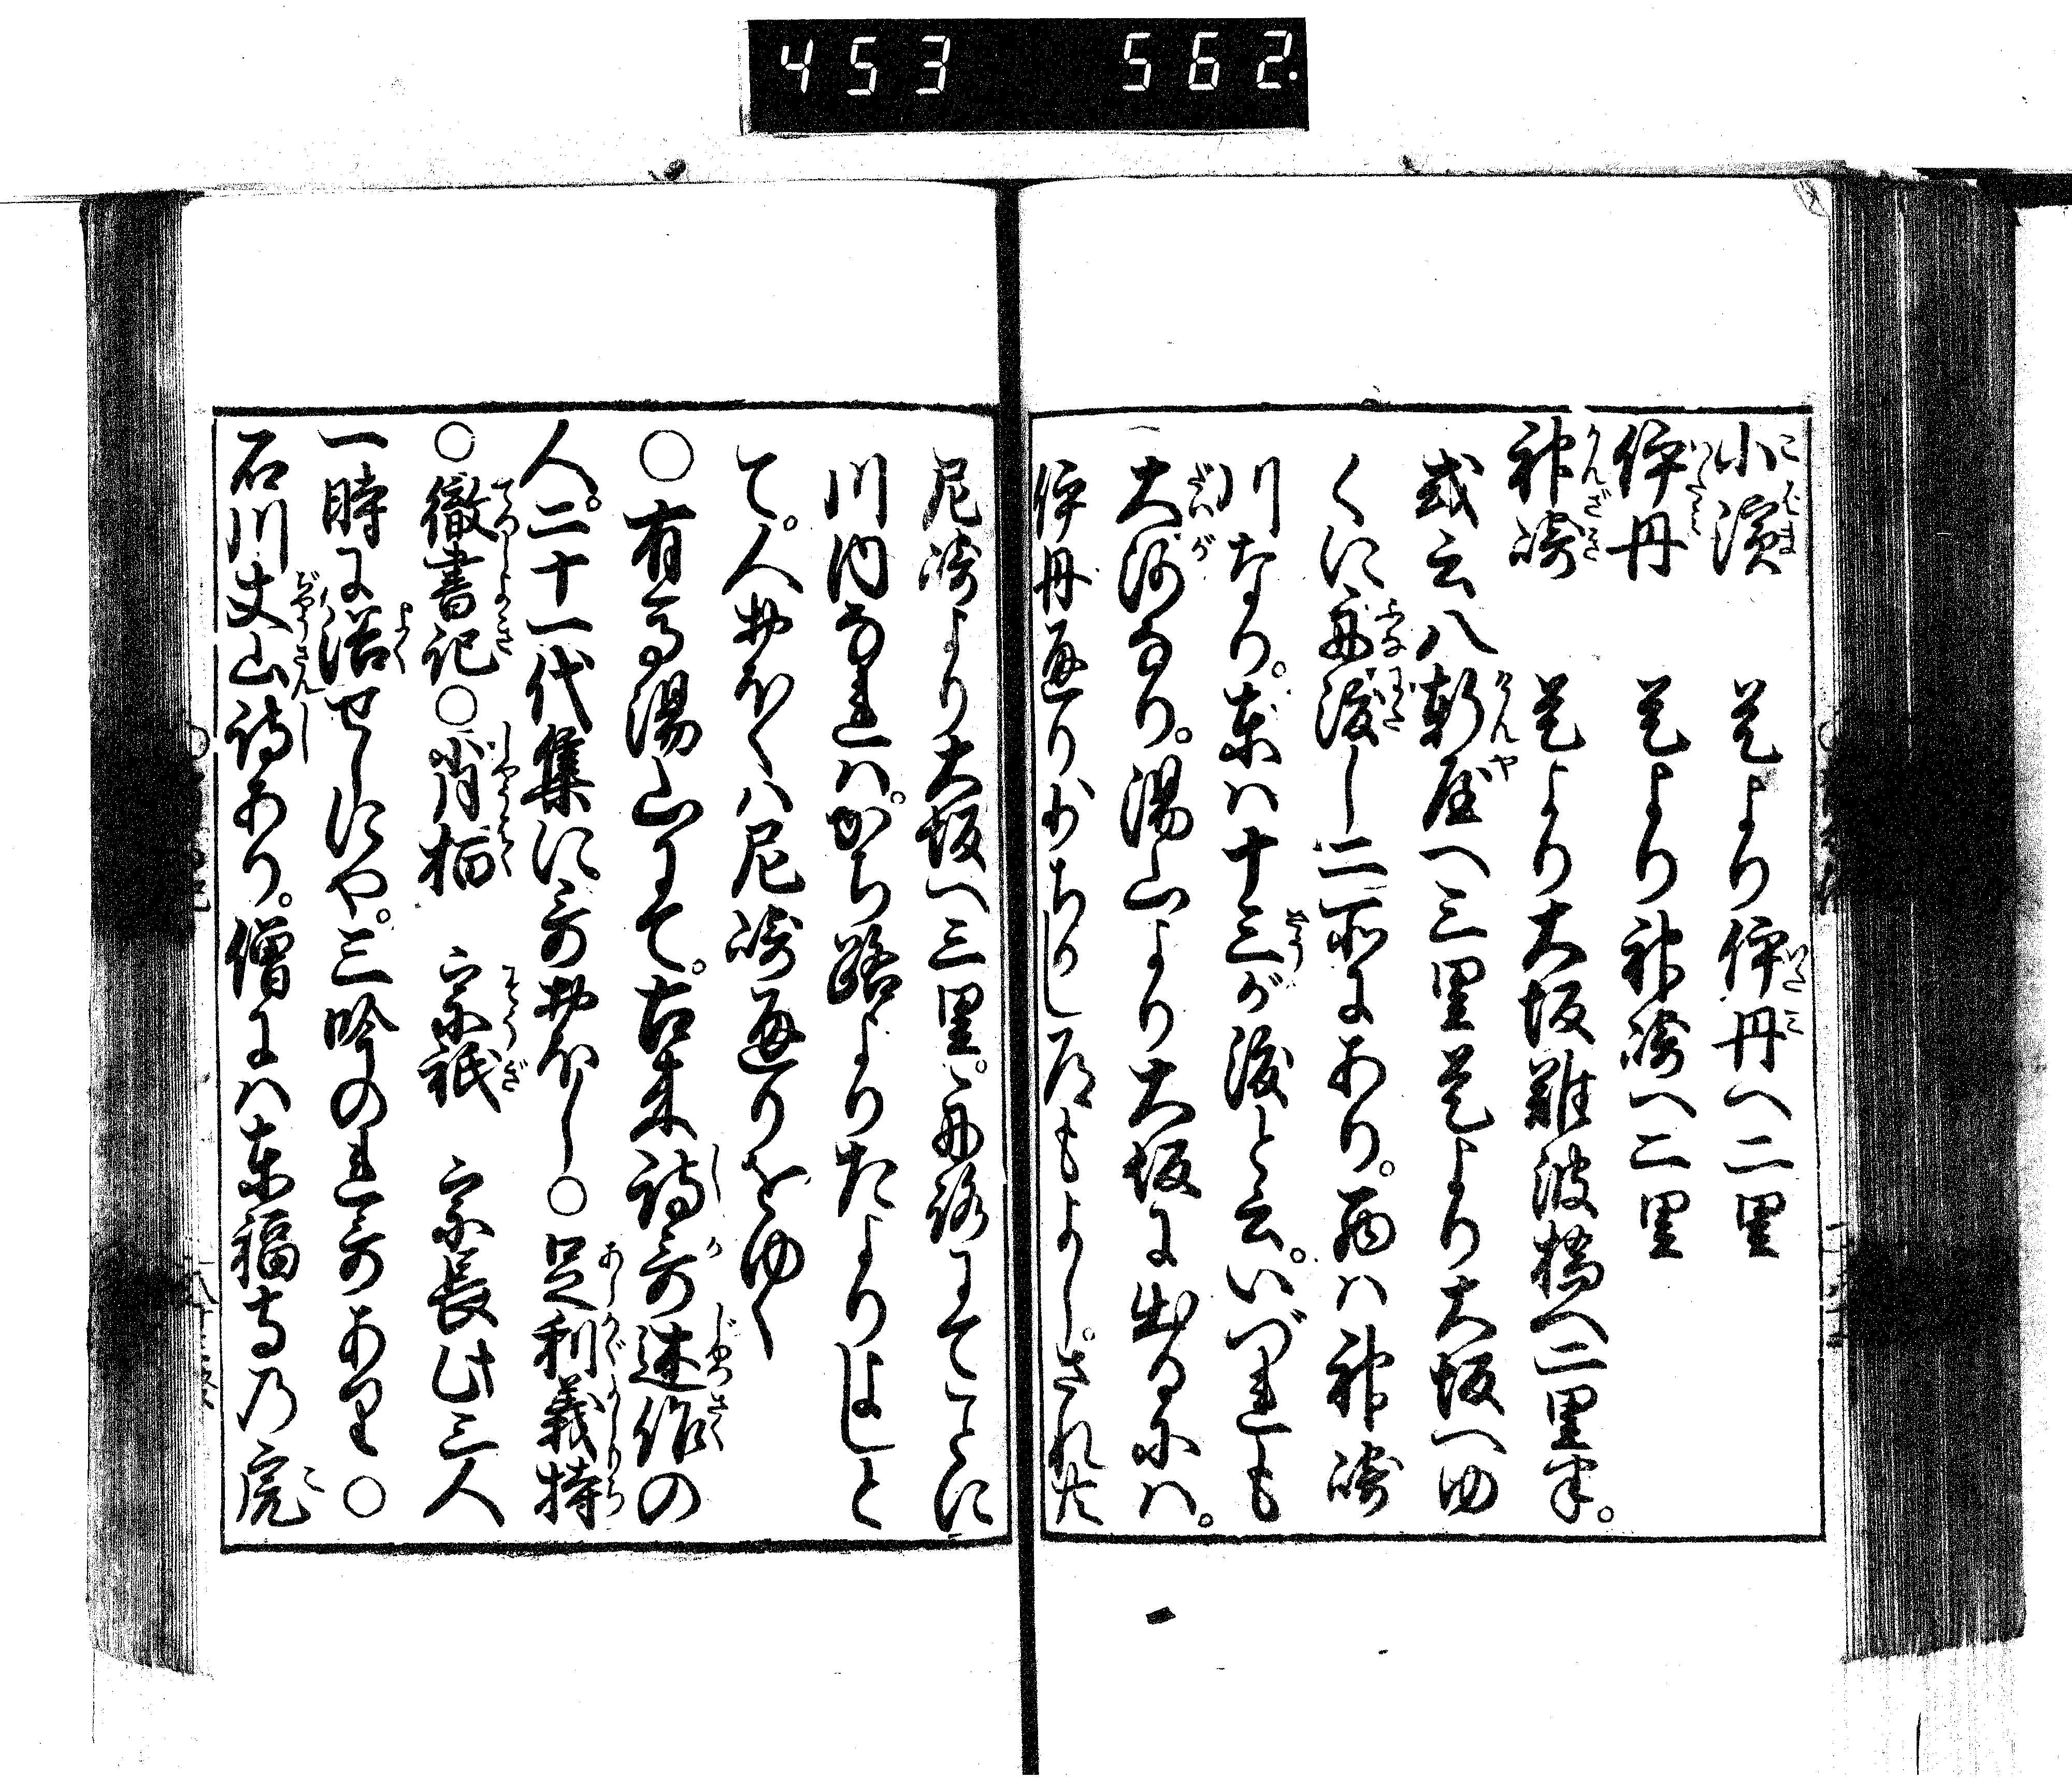 453 562.
小濱 是より伊丹へ二里
伊丹 是より神崎へ二里
神崎 是より大坂難波橋へ二里半。
或云八軒屋へ三里是より大坂へゆ
くに舟渡し二所にあり。西ハ神崎
川なり。東ハ十三が渡と云。いづれも
大河なり。湯山より大坂に出るにハ。
伊丹通り少ちかし尤もよし。され共
尼崎より大坂へ三里。舟路にてことに
川内なれハ。かち路よりたよりよしと
て。人おほくハ尼崎通りをゆく
○有馬湯山にて。古来詩哥述作の
人。二十一代集に哥おほし○足利義持
○徹書記○肖柏 宗祇 宗長此三人
一時に浴せしにや。三吟の連哥あり○
石川丈山詩あり。僧にハ東福寺乃虎